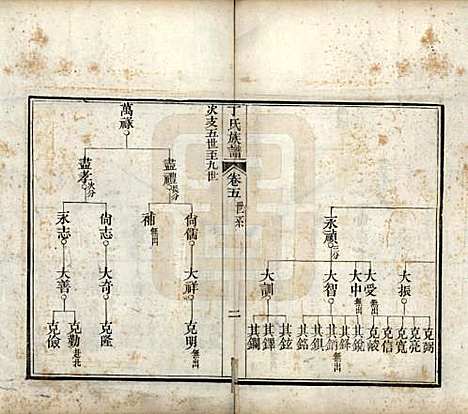 丁氏族譜
卷五
世系
二
永頑
二分
大振
大受
大中
無出
大智
大訓
克弼
克亮
克寬
克信
克敵
其銳
其鋒
其銷
無出
其鎮
其銘
其鉉
其鐸
其鑭
次支五世至九世
萬祿
盡禮
長分
盡孝
次分
尙儒
補
無出
尙志
永志
大祥
大奇
大善
克明
無出
克隆
克勤
赴北
克儉